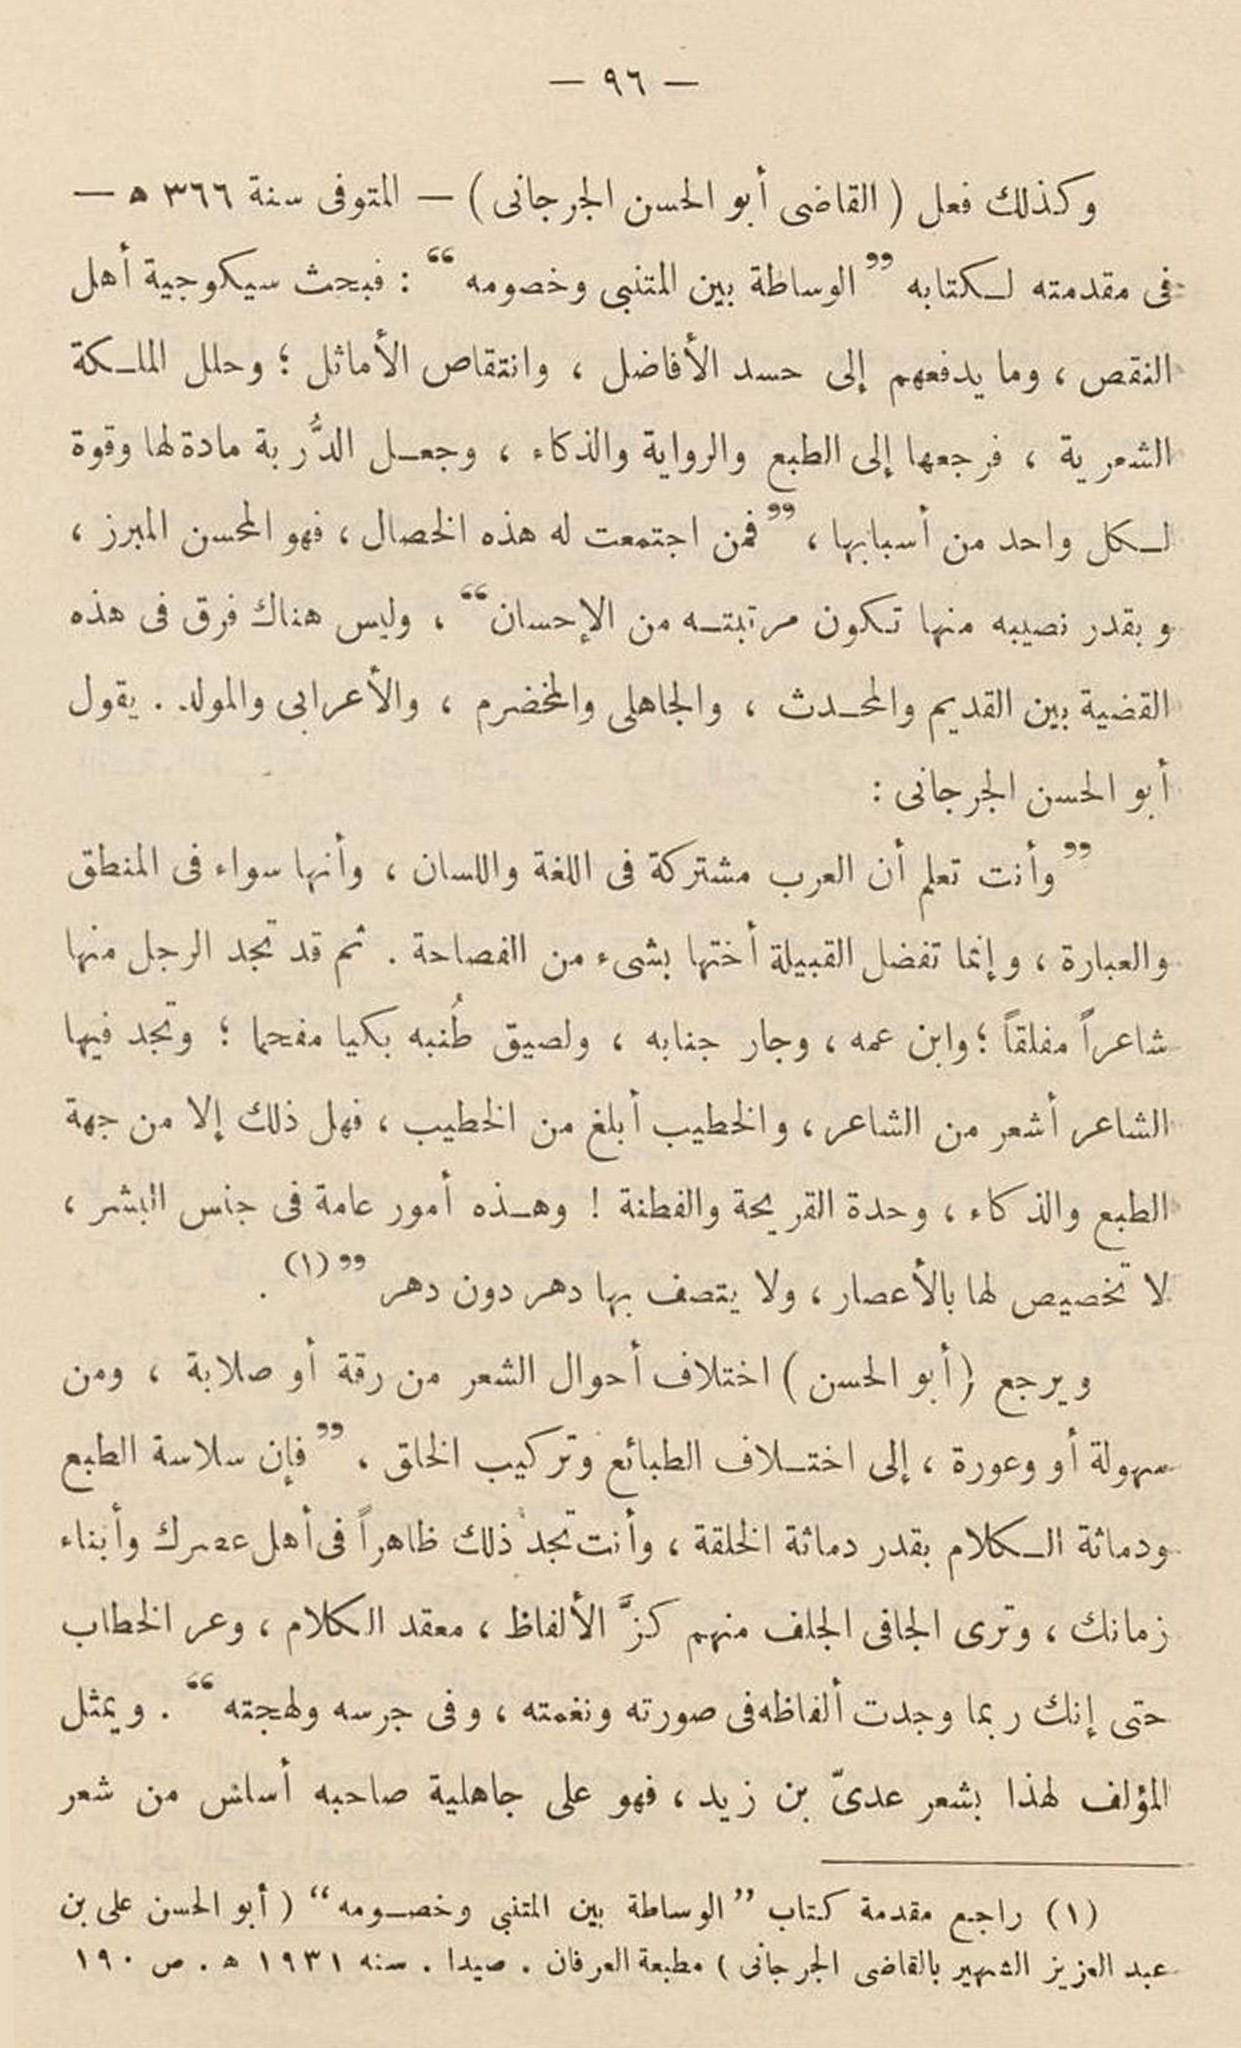 — ٩٦ —
وكذلك فعل ( القاضى أبو الحسن الجرجانى ) — المتوفى سنة ٣٦٦ ه —
فى مقدمته لكتابه ”الوساطة بين المتنبى وخصومه“ : فبحث سيكوجية أهل
النقص ، وما يدفعهم إلى حسد الأفاضل ، وانتقاص الأماثل ؛ وحلل الملكة
الشعرية ، فرجعها إلى الطبع والرواية والذكاء ، وجعل الدُّربة مادة لها وقوة
لكل واحد من أسبابها ، ”فمن اجتمعت له هذه الخصال ، فهو المحسن المبرز ،
وبقدر نصيبه منها تكون مرتبته من الإحسان“ ، وليس هناك فرق فى هذه
القضية بين القديم والمحدث ، والجاهلى والمخضرم ، والأعرابى والمولد . يقول
أبو الحسن الجرجانى :
”وأنت تعلم أن العرب مشتركة فى اللغة واللسان ، وأنها سواء فى المنطق
والعبارة ، وإنما تفضل القبيلة أختها بشىء من الفصاحة . ثم قد تجد الرجل منها
شاعراً مفلقاً ؛ وابن عمه ، وجار جنابه ، ولصيق طُنبه بكيا مفحما ؛ وتجد فيها
الشاعر أشعر من الشاعر ، والخطيب أبلغ من الخطيب ، فهل ذلك إلا من جهة
الطبع والذكاء ، وحدة القريحة والفطنة ! وهذه أمور عامة فى جنس البشر ،
لا تخصيص لها بالأعصار ، ولا يتصف بها دهر دون دهر ” (١) .
ويرجع ( أبو الحسن ) اختلاف أحوال الشعر من رقة أو صلابة ، ومن
سهولة أو وعورة ، إلى اختلاف الطبائع وتركيب الخلق ، ”فإن سلاسة الطبع
ودماثة الكلام بقدر دماثة الخلقة ، وأنت تجد ذلك ظاهراً فى أهل عصرك وأبناء
زمانك ، وترى الجافى الجلف منهم كزَّ الألفاظ ، معقد الكلام ، وعر الخطاب
حتى إنك ربما وجدت ألفاظه فى صورته ونغمته ، وفى جرسه ولهجته “ . ويمثل
المؤلف لهذا بشعر عدىّ بن زيد ، فهو على جاهلية صاحبه أسلس من شعر
(١) راجع مقدمة كتاب ”الوساطة بين المتنبي وخصومه“ ( أبو الحسن على بن
عبد العزيز الشهير بالقاضى الجرجانى ) مطبعة العرفان . صيدا . سنه ١٩٣١ ه . ص ١٩٠